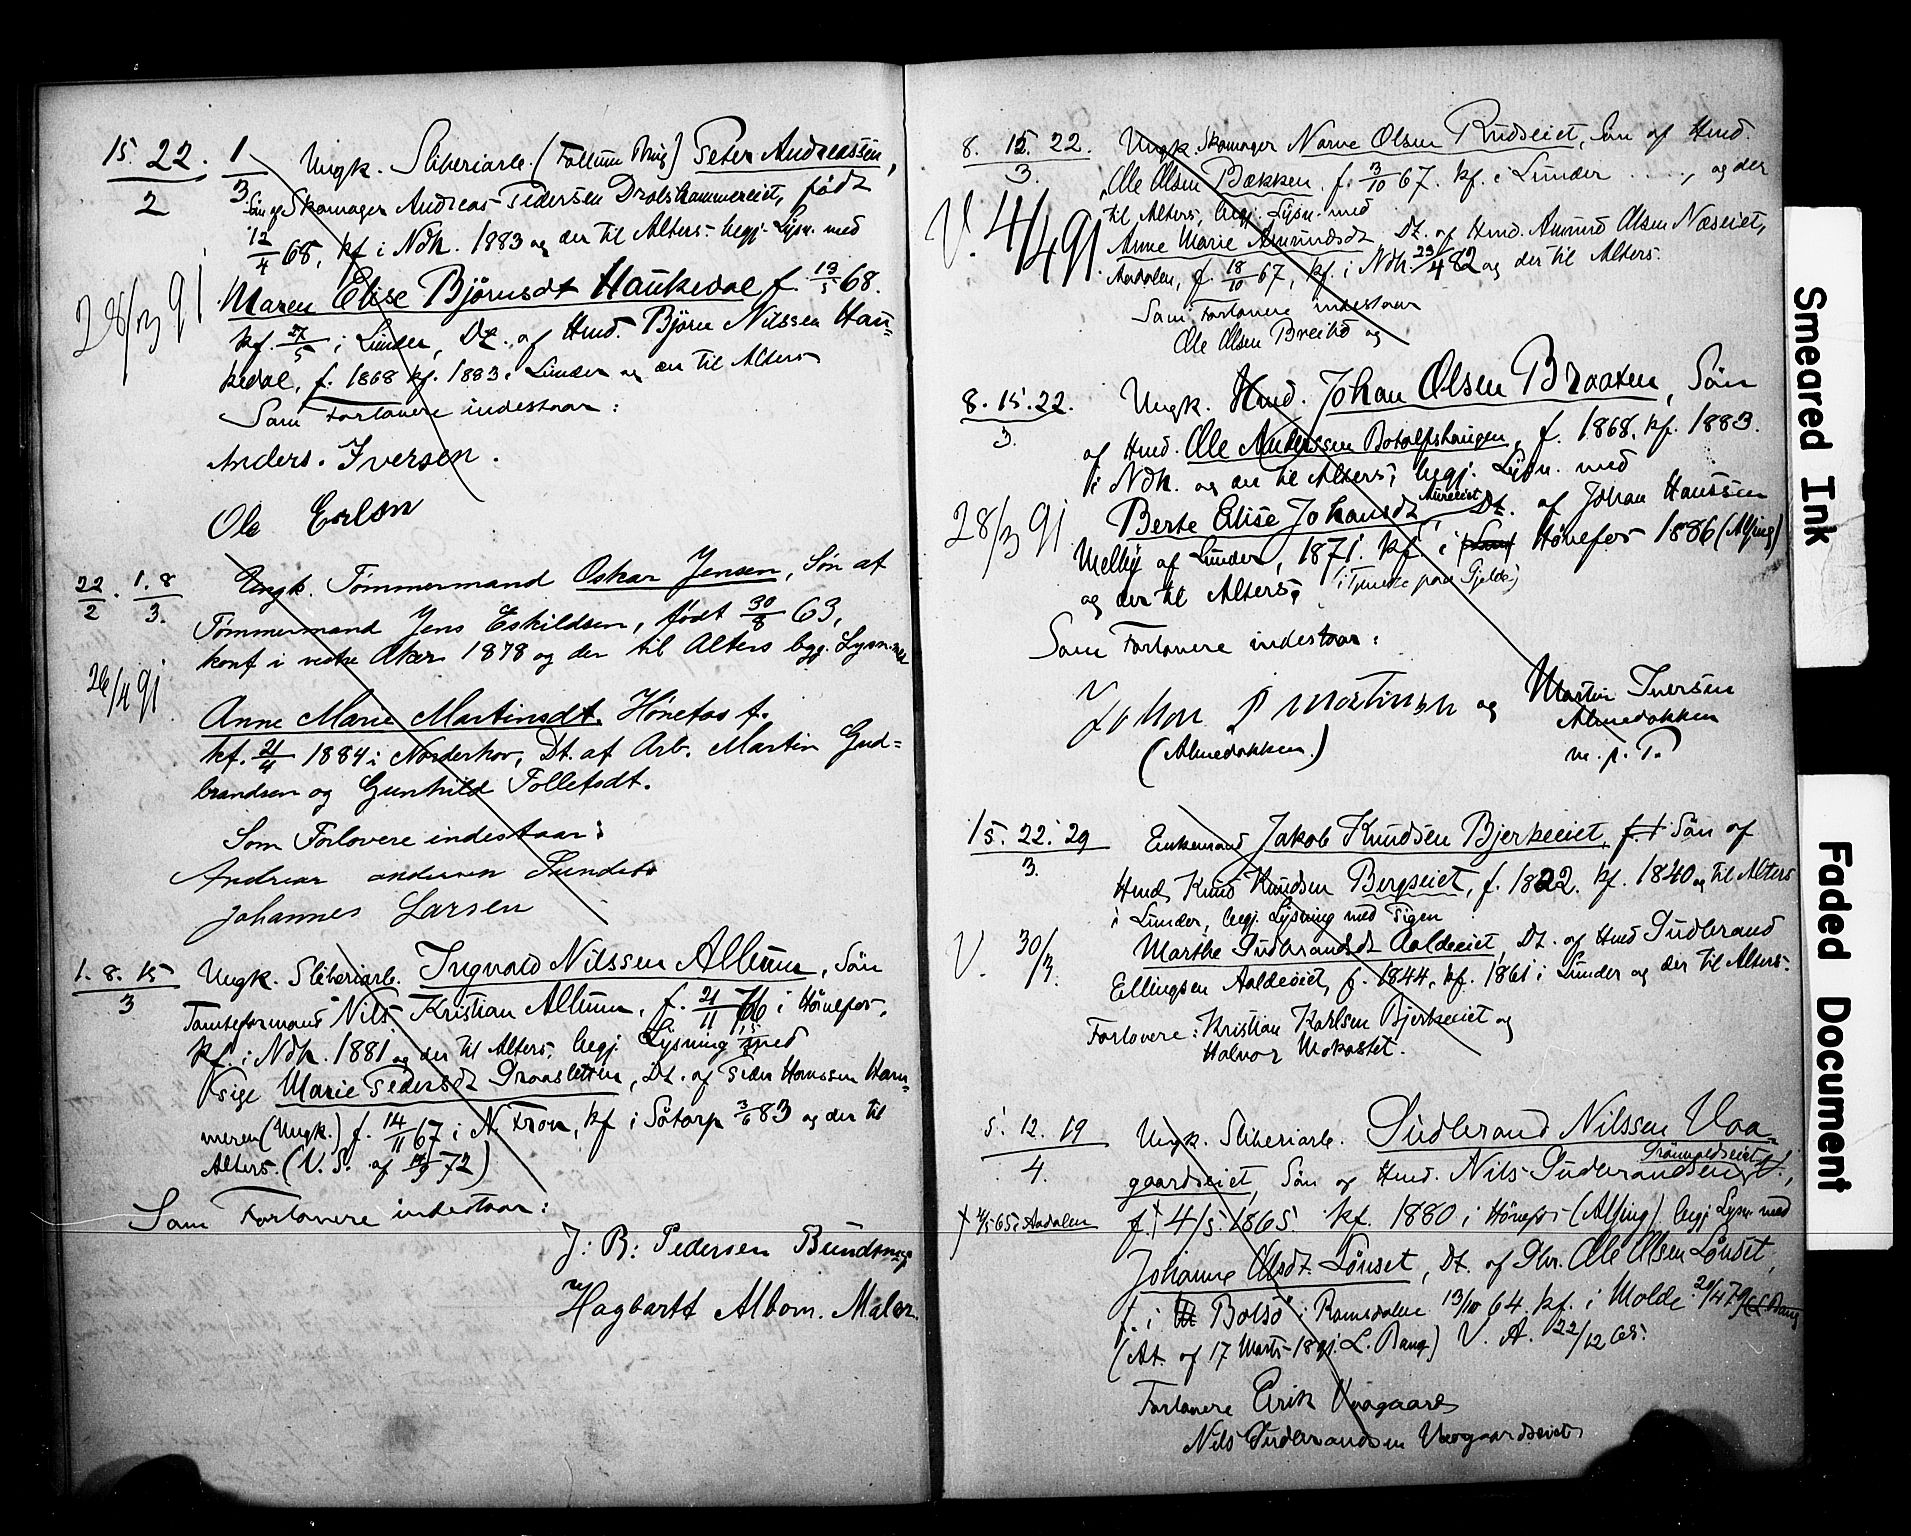 15. 22. 1
2 3
Ungk. Sliberiarb. (Follum Brug) Peter Andreassen,
Søn af Skomager Andreas Pedersen Drolshammereiet, født
12/4 68, kf. i Ndh. 1883 og der til Alters- begj. Lysn. med
28/3 91
Maren Elise Bjørnsdt Haukedal f. 13/5 68.
kf. 27/5 i Lunder, Dt. af Hmd. Bjørn Nilssen Hau=
kedal, f. 1868 kf. 1883 i Lunder og der til Alters
Som Forlovere indestaar:
Anders. Iversen.
Ole
22/2 . 1. 8/3.
Ungk. Tømmermand Oskar Jensen, Søn af
Tømmermand Jens Eskildsen, født 30/8 63,
konf i vestre Aker 1878 og der til Alters begj. Lysn. med
26/4 91
Anne Marie Martinsdt. Hønefos f.
kf. 21/4 1884 i Norderhov, Dt. af Arb. Martin Gud=
brandsen og Gunhild Tollefsdt.
Som Forlovere indestaar:
Andreas andersen
Johannes Larsen
1. 8. 15
3
Ungk. Sliberiarb. Ingvald Nilssen Album, Søn
Tomteformand Nils Kristian Album, f. 21/11 66 i Hønefos,
kf. i Ndh. 1881 og der til Alters, begj. Lysning med
Pige Marie Pedersdt Braasletten, Dt. af Peder Hanssen Ham=
meren (Ungk.) f. 14/11 67 i N. Fron, kf i Sôtorp 3/6 83 og der til
Alters. (V. S. af 72)
Som Forlovere indestaar:
J: B: Pedersen
Hagbartt Albom. Maler.
8. 15. 22.
3.
Ungk. Skomager Narve Olsen Rudseiet, Søn af Hmd.
Ole Olsen Bækken. f. 3/10 67. kf. i Lunder ...., og der
til Alters, begj. Lysn. med
V. 4/4 91.
Anne Marie Amundsdt Dt. af Hmd. Amund Olsen Næseiet,
Aadalen, f. 18/10 67, kf. i Ndh. 23/4 82 og der til Alters.
Som Forlovere indestaar
Ole Olsen Breibø og
8. 15. 22.
3.
Ungk. Hmd. Johan Olsen Braaten, Søn
af Hmd. Ole Anderssen Botolfshaugen, f. 1868, kf. 1883.
i Ndh. og der til Alters, begj. Lysn. med
28/3 91
Berte Elise Johansdt Dt. af Johan Hanssen
Melby af Lunder, 1871. kf. i Hønefos 1886 (Alfing)
og der til Alters, (i Tjeneste paa Gjelde)
Som Forlovere indestaar:
Johan P Martinsen og Martin Iversen
(Almedokken.) Almedokken
m. p. P.
15. 22. 29
3.
Enkemand Jakob Knudsen Bjerkeeiet, f. Søn af
Hmd Knud Knudsen Bergseiet, f. 1822. kf. 1840 og til Alters
i Lunder, begj. Lysning med Pigen
V. 30/3.
Marthe Gudbrandsdt Aaldeeiet, Dt. af Hmd Gudbrand
Ellingsen Aaldeeiet, f. 1844, kf. 1861 i Lunder og der til Alters.
Forlovere: Kristian Karlsen Bjerkeeiet og
Halvor Mokastet.
5. 12. 19
4.
Ungk. Sliberiarb. Gudbrand Nilssen Vaa=
gaardseiet, Søn af Hmd. Nils Gudbrandsen
† 4/5 65 i Aadalen
f. 4/5. 1865. kf. 1880 i Hønefos (Alfing) begj Lysn med
Johanne Olsdt. Lønset, Dt. af Gbr. Ole Olsen Lønset,
f. i Bolsø i Romsdalen 13/10 64. kf. i Molde 20/4 79
(At. af 17 Marts 1891. L. Bang) V. A. 22/12 65.
Forlovere Erik Vaagaard
Nils Gudbrandsen Vaagaardseiet
Smeared Ink
Faded Document